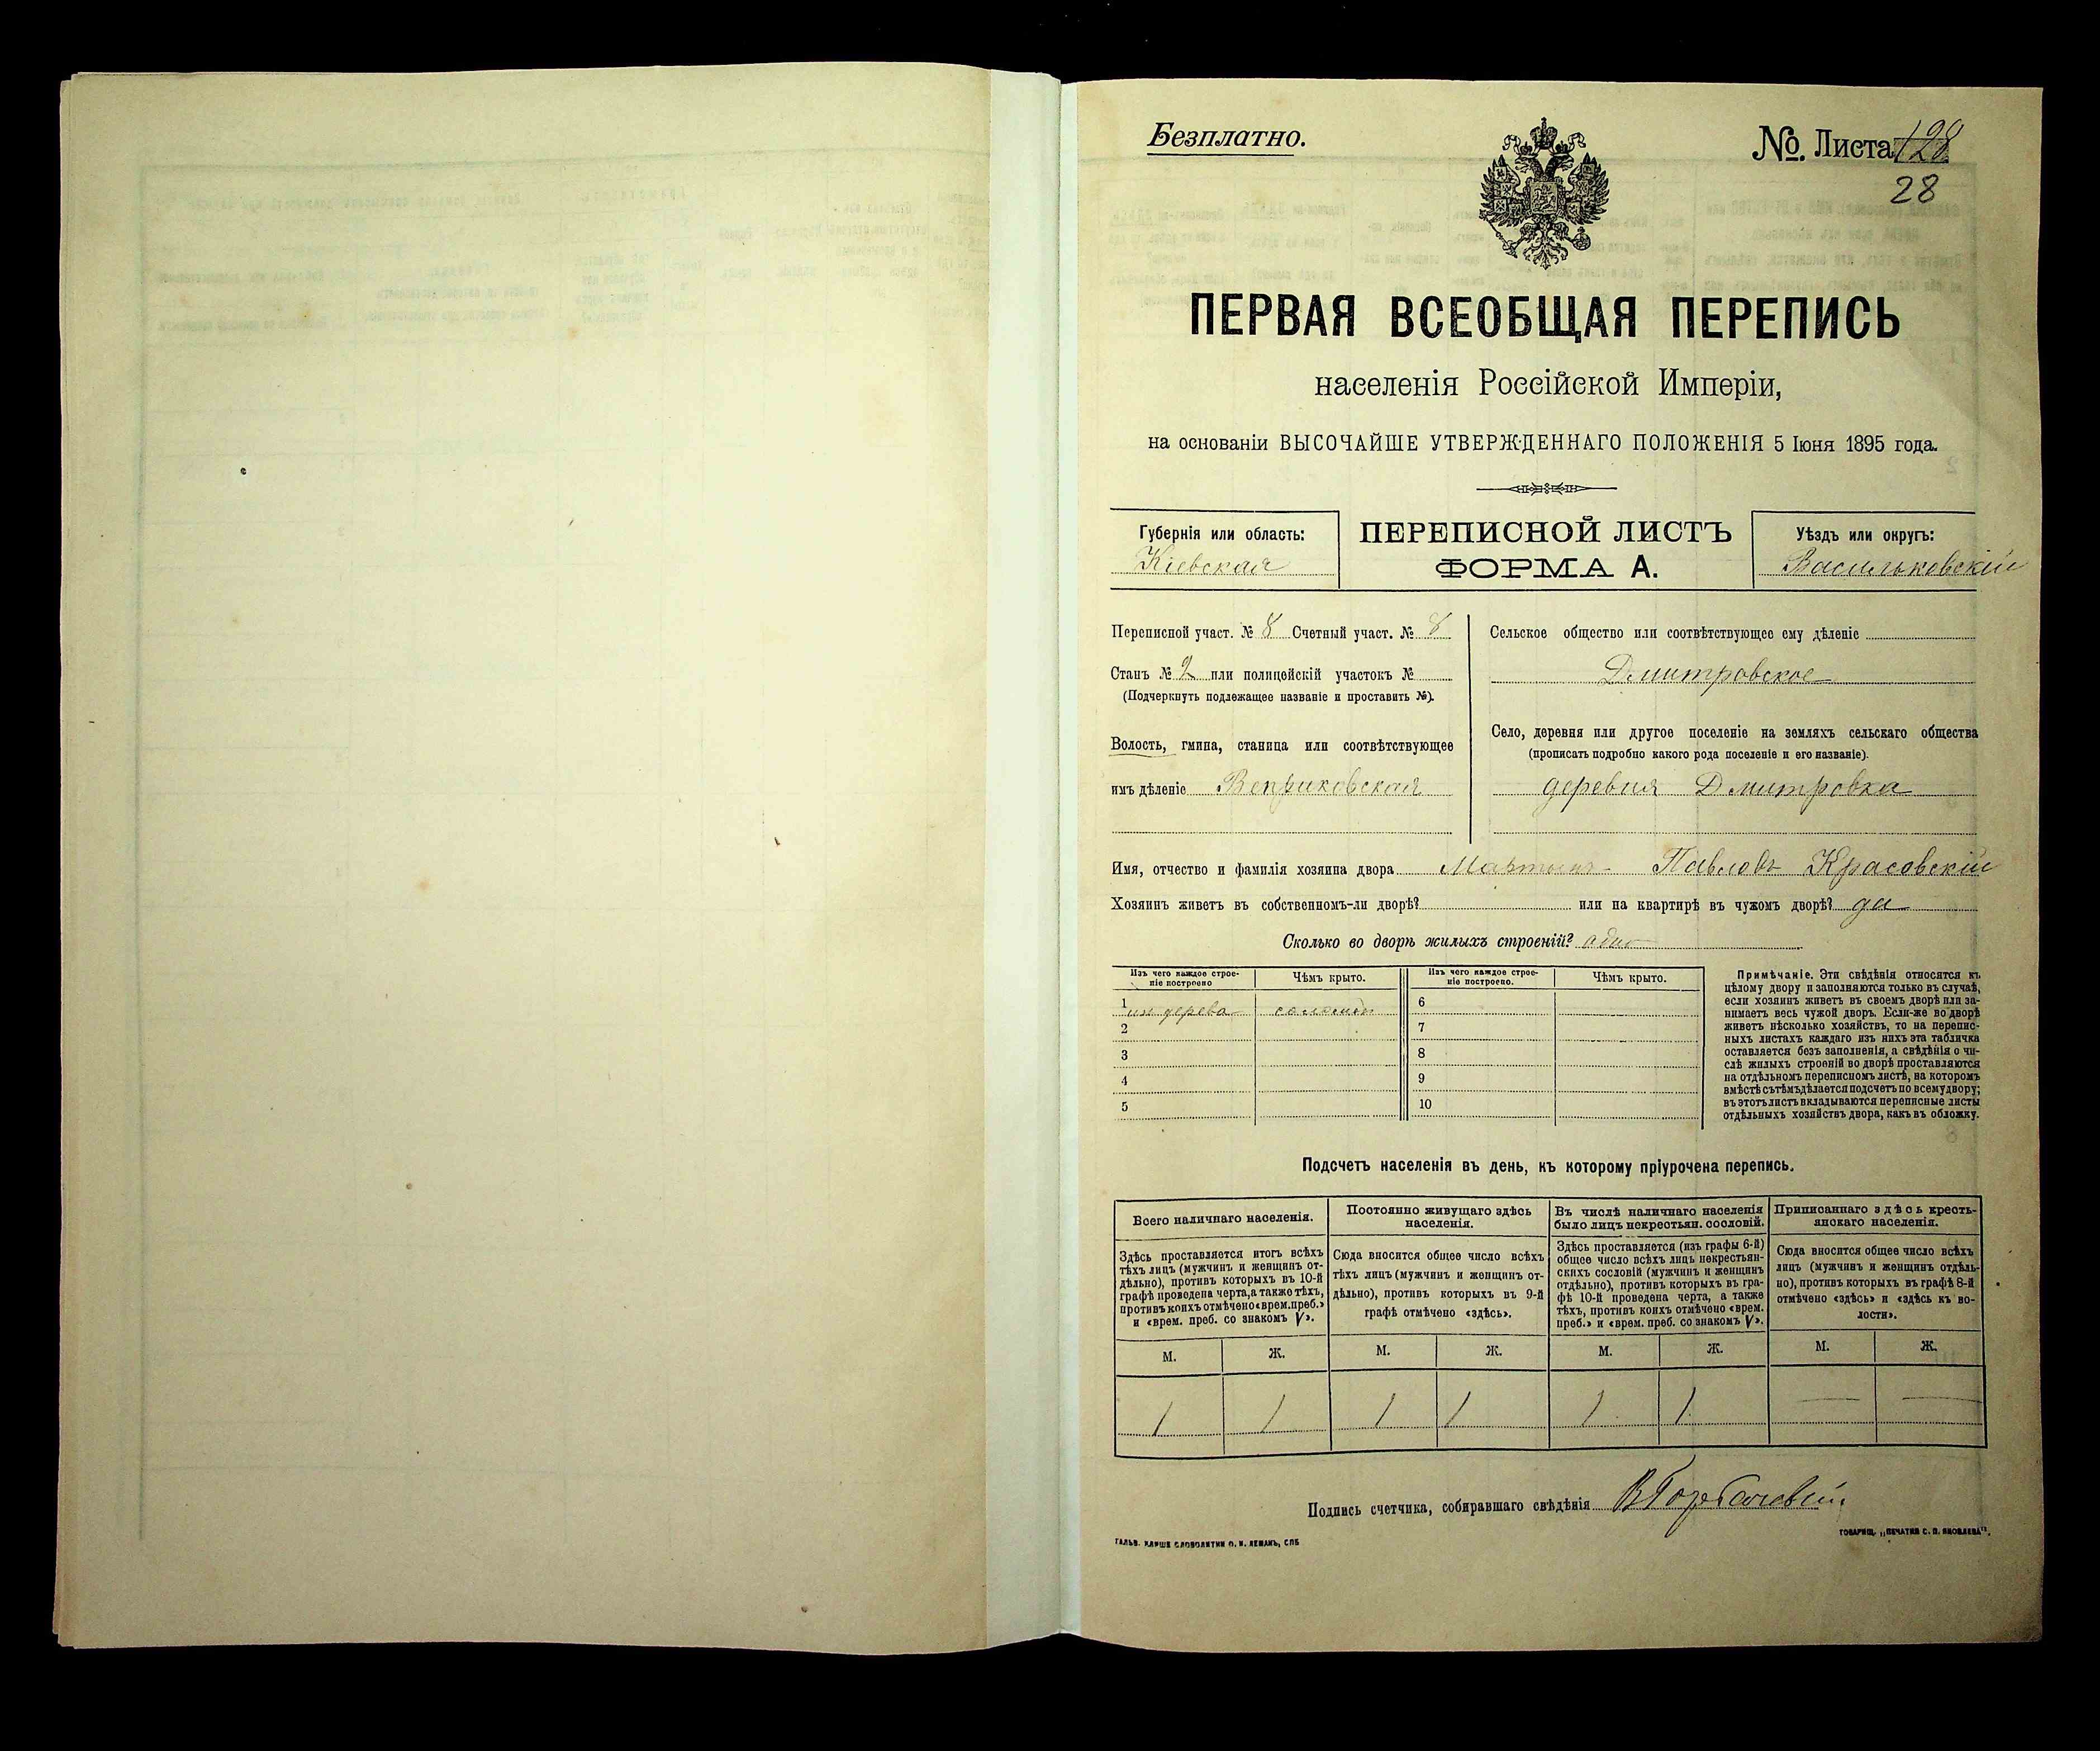 Безплатно.
№. Листа 128
28
ПЕРВАЯ ВСЕОБЩАЯ ПЕРЕПИСЬ
населенія Россійской Имперіи,
на основаніи ВЫСОЧАЙШЕ УТВЕРЖДЕННАГО ПОЛОЖЕНІЯ 5 Іюня 1895 года.
Губернія или область:
Кіевская
ПЕРЕПИСНОЙ ЛИСТЪ
ФОРМА А.
Уѣздъ или округъ:
Васильковскій
Переписной участ. № 8 Счетный участ. № 8
Станъ № 2 или полицейскій участокъ №
(Подчеркнуть подлежащее названіе и проставить №).
Волость, гмина, станица или соотвѣтствующее
имъ дѣленіе Веприковская
Сельское общество или соотвѣтствующее ему дѣленіе
Дмитровское
Село, деревня или другое поселеніе на земляхъ сельскаго общества
(прописать подробно какого рода поселеніе и его названіе).
деревня Дмитровка
Имя, отчество и фамилія хозяина двора Мартынъ Павловъ Красовскій
Хозяинъ живетъ въ собственномъ-ли дворѣ? или на квартирѣ въ чужомъ дворѣ? да
Сколько во дворѣ жилыхъ строеній? одно
Изъ чего каждое строе-
ніе построено
Чѣмъ крыто.
Изъ чего каждое строе-
ніе построено.
Чѣмъ крыто.
1 из дерева соломой
2
3
4
5
6
7
8
9
10
Примѣчаніе. Эти свѣдѣнія относятся къ
цѣлому двору и заполняются только въ случаѣ,
если хозяинъ живетъ въ своемъ дворѣ или за-
нимаетъ весь чужой дворъ. Если-же во дворѣ
живетъ нѣсколько хозяйствъ, то на перепис-
ныхъ листахъ каждаго изъ нихъ эта табличка
оставляется безъ заполненія, а свѣдѣнія о чи-
слѣ жилыхъ строеній во дворѣ проставляются
на отдѣльномъ переписномъ листѣ, на которомъ
вмѣстѣ съ тѣмъ дѣлается подсчетъ по всему двору;
въ этотъ листъ вкладываются переписные листы
отдѣльныхъ хозяйствъ двора, какъ въ обложку.
Подсчетъ населенія въ день, къ которому пріурочена перепись.
Всего наличнаго населенія.
Здѣсь проставляется итогъ всѣхъ
тѣхъ лицъ (мужчинъ и женщинъ от-
дѣльно), противъ которыхъ въ 10-й
графѣ проведена черта, а также тѣхъ,
противъ коихъ отмѣчено «врем. преб.»
и «врем. преб. со знакомъ V».
Постоянно живущаго здѣсь
населенія.
Сюда вносится общее число всѣхъ
тѣхъ лицъ (мужчинъ и женщинъ от-
дѣльно), противъ которыхъ въ 9-й
графѣ отмѣчено «здѣсь».
Въ числѣ наличнаго населенія
было лицъ некрестьян. сословій.
Здѣсь проставляется (изъ графы 6-й)
общее число всѣхъ лицъ некрестьян-
скихъ сословій (мужчинъ и женщинъ
отдѣльно), противъ которыхъ въ гра-
фѣ 10-й проведена черта, а также
тѣхъ, противъ коихъ отмѣчено «врем.
преб.» и «врем. преб. со знакомъ V».
Приписаннаго здѣсь кресть-
янскаго населенія.
Сюда вносится общее число всѣхъ
лицъ (мужчинъ и женщинъ отдѣль-
но), противъ которыхъ въ графѣ 8-й
отмѣчено «здѣсь» и «здѣсь къ во-
лости».
М. Ж. М. Ж. М. Ж. М. Ж.
1 1 1 1 1 1 — —
Подпись счетчика, собиравшаго свѣдѣнія
ГАЛЬВ. КЛИШЕ СЛОВОЛИТНИ О. И. ЛЕМАНЪ, СПБ
ТОВАРИЩ. „ПЕЧАТНЯ С. П. ЯКОВЛЕВА“.